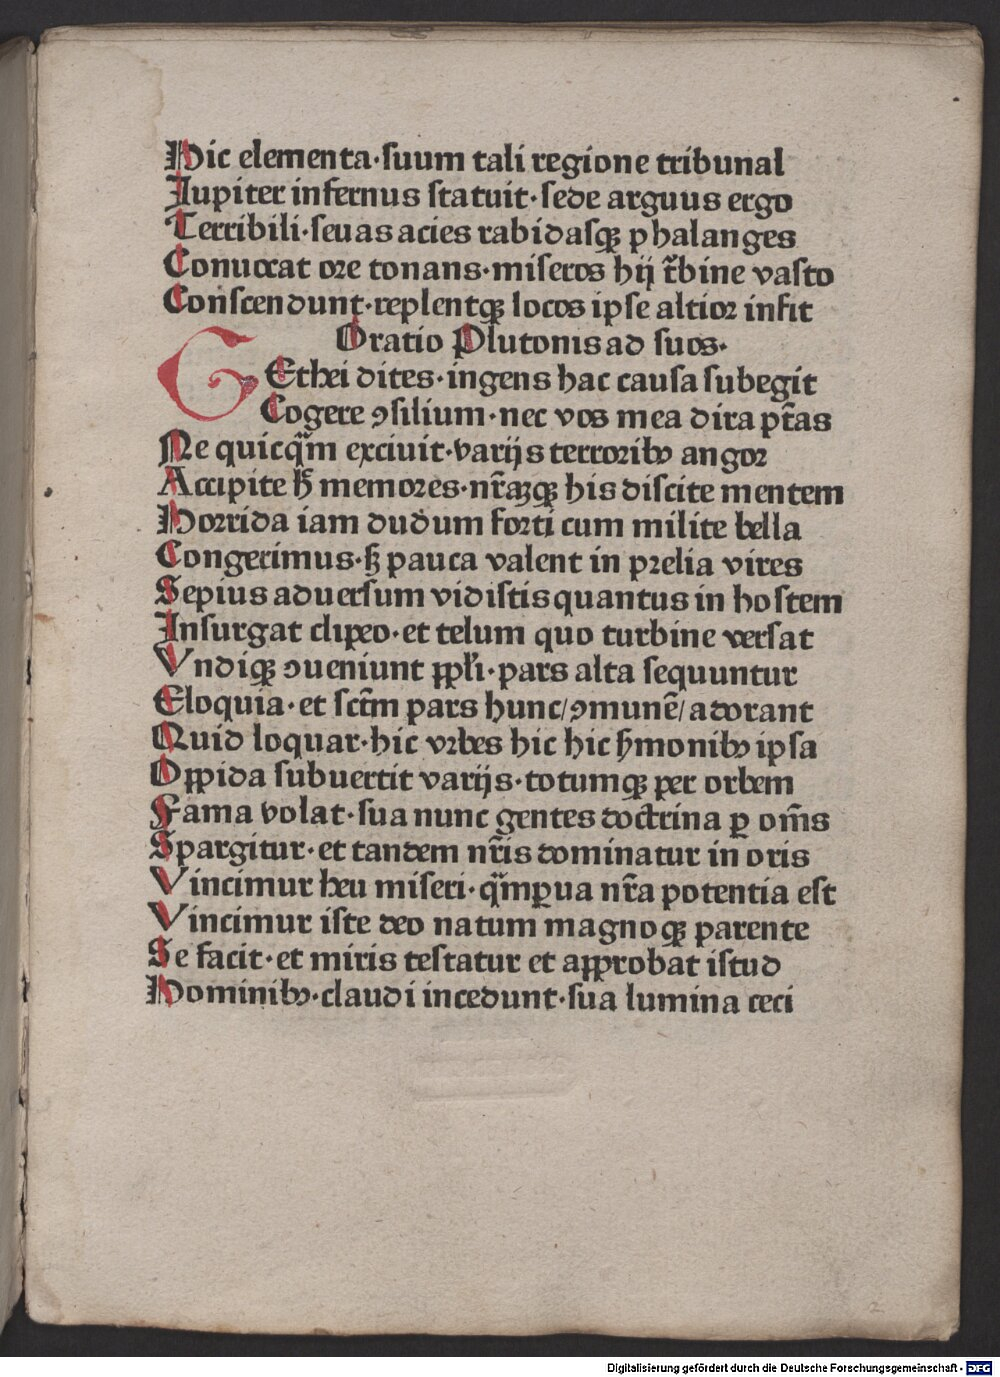 Hic elementa·suum tali regione tribunal
Iupiter infernus statuit·sede arguus ergo
Terribili·seuas acies rabidasqꝫ phalanges
Conuocat ore tonans·miseros hij t̄bine vasto
Conscendunt·replentqꝫ locos ipse altior infit
Oratio Plutonis ad suos·
G Ethei dites·ingens hac causa subegit
Cogere ꝯsilium·nec vos mea dira pt̄as
Ne quicqm̄ exciuit·varijs terroribꝰ angor
Accipite h̄ memores·nr̄aꝫqꝫ his discite mentem
Horrida iam dudum forti cum milite bella
Congerimus·sꝫ pauca valent in prelia vires
Sepius aduersum vidistis quantus in hostem
Insurgat clipeo·et telum quo turbine versat
Vndiqꝫ ꝯueniunt ppl̄i·pars alta sequuntur
Eloquia·et sct̄m pars hunc/ꝯmunē/adorant
Quid loquar·hic vrbes hic hic h̄monibꝰ ipsa
Oppida subuertit varijs·totumqꝫ per orbem
Fama volat·sua nunc gentes doctrina ꝑ om̄s
Spargitur·et tandem nr̄is dominatur in oris
Vincimur heu miseri·qm̄ꝑua nr̄a potentia est
Vincimur iste deo natum magnoqꝫ parente
Se facit·et miris testatur et approbat istud
Hominibꝰ·claudi incedunt·sua lumina ceci
2
Digitalisierung gefördert durch die Deutsche Forschungsgemeinschaft - DFG